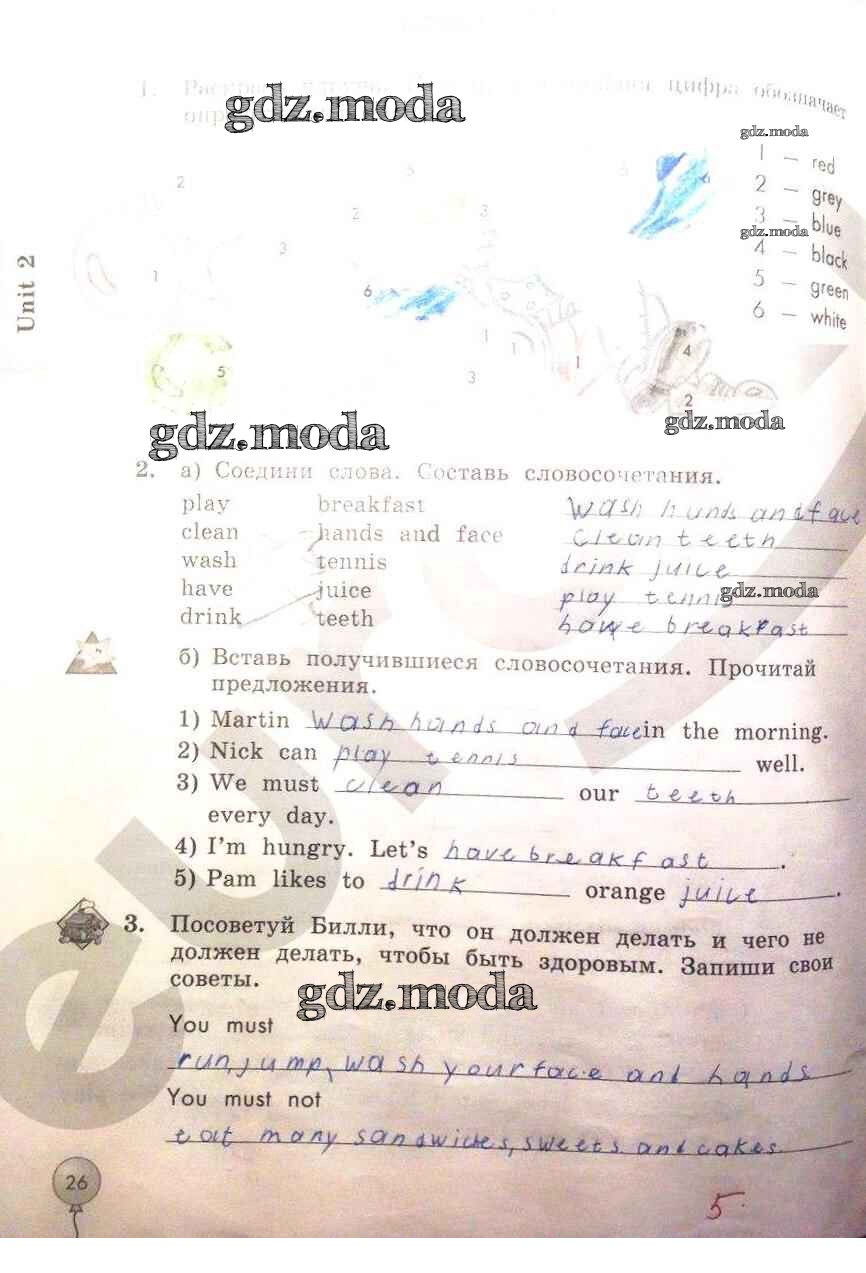 1. цифра обозначает
gdz.moda
gdz.moda
1 – red
2 – grey
3 – blue
gdz.moda
4 – black
5 – green
6 – white
2
5
3
6
2
3
3
1
6
1
1
1
4
5
3
2
Unit 2
gdz.moda
gdz.moda
2. а) Соедини слова. Составь словосочетания.
play breakfast wash hands and face
clean hands and face clean teeth
wash tennis drink juice
have juice play tennis
gdz.moda
drink teeth have breakfast
б) Вставь получившиеся словосочетания. Прочитай
предложения.
1) Martin wash hands and face in the morning.
2) Nick can play tennis well.
3) We must clean our teeth
every day.
4) I'm hungry. Let's have breakfast.
5) Pam likes to drink orange juice.
3. Посоветуй Билли, что он должен делать и чего не
должен делать, чтобы быть здоровым. Запиши свои
советы.
gdz.moda
You must
run, jump, wash your face and hands
You must not
eat many sandwiches, sweets and cakes.
26
5